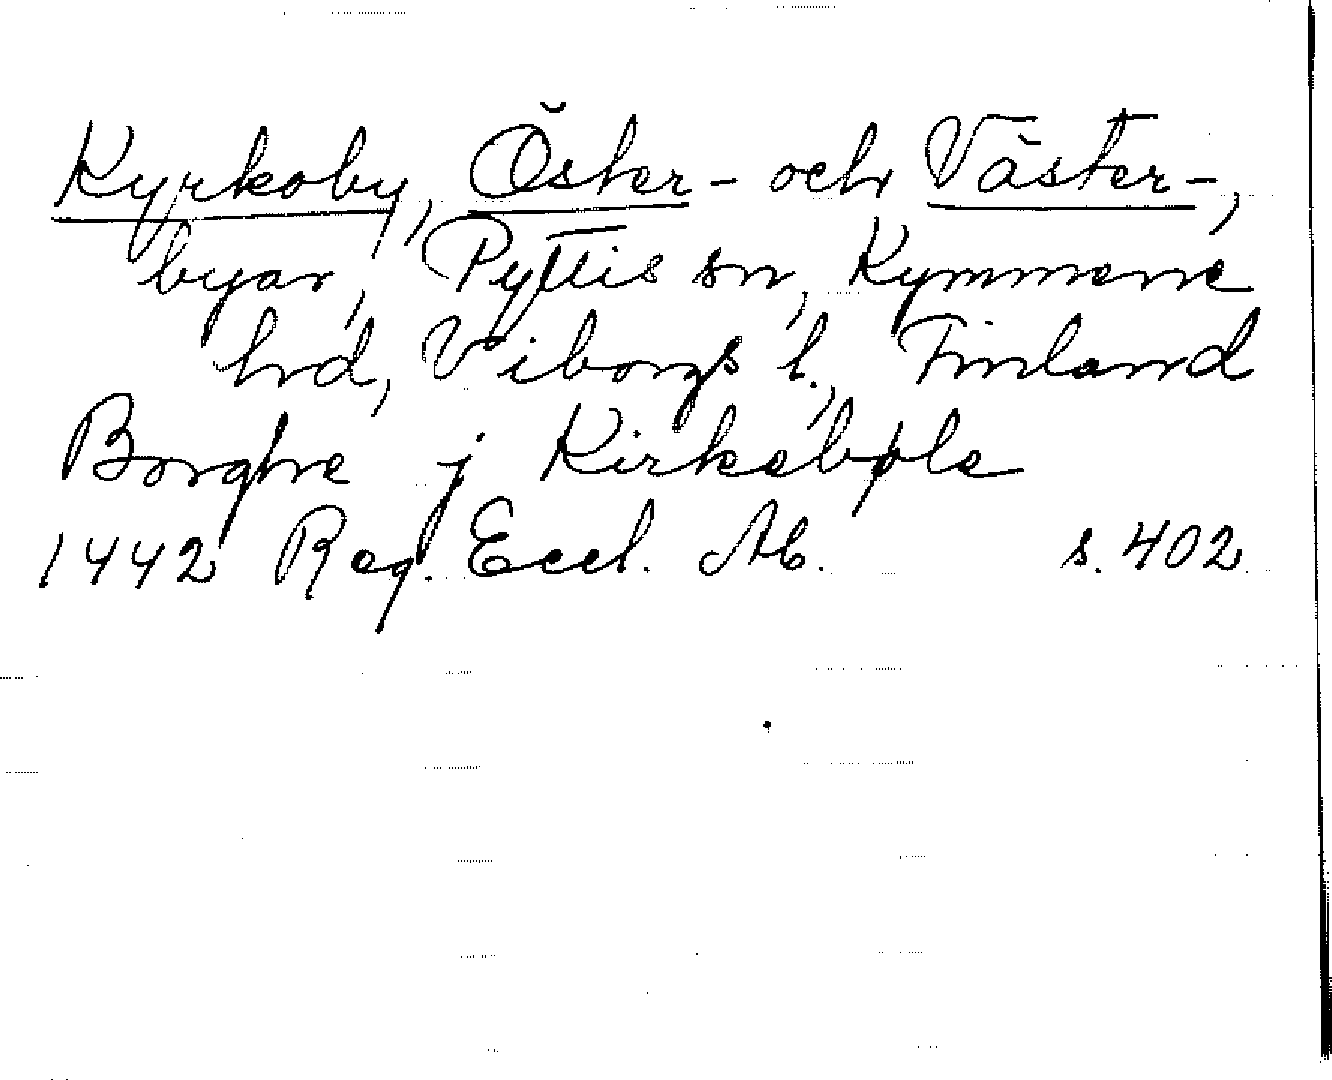 Kyrkoby, Öster- och Väster-,
byar, Pyttis sn, Kymmene
hrd, Viborgs l., Finland
Borghre j Kirkebøle
1442 Reg. Eccl. Ab. s. 402